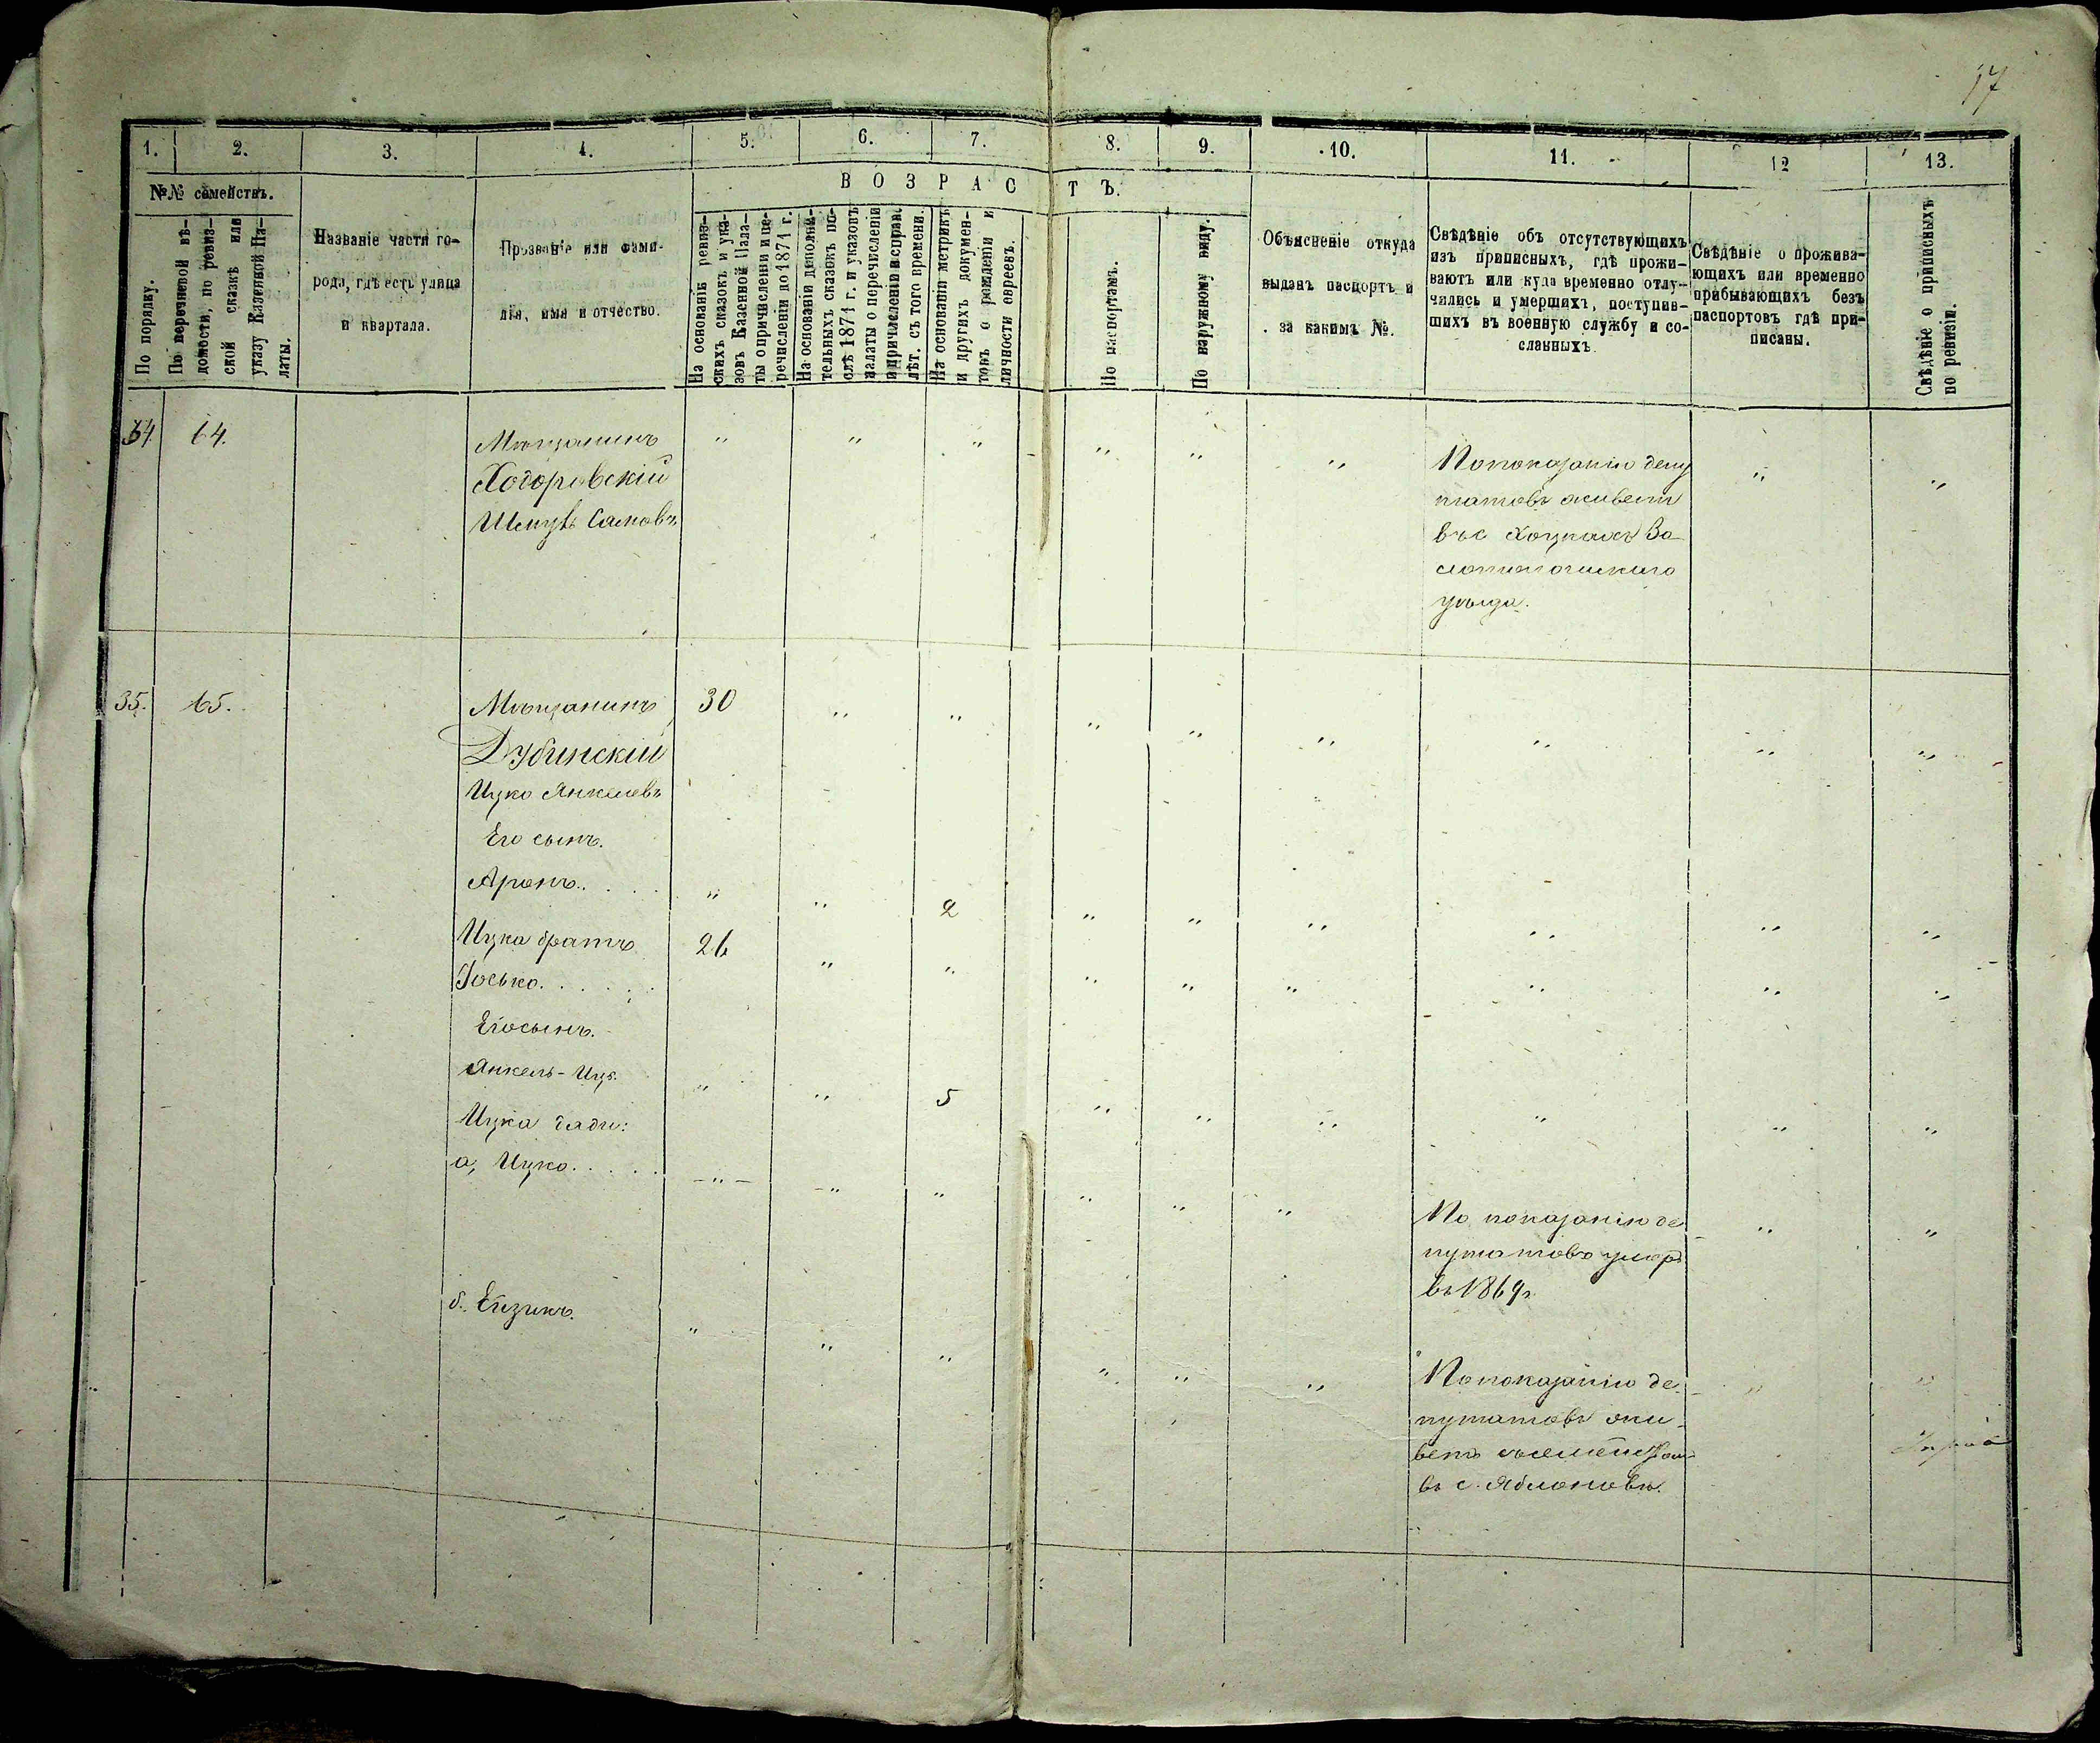 17
1. 2. 3. 4. 5. 6. 7. 8. 9. 10. 11. 12 13.
№№ семействъ.
По порядку.
По перечневой вѣ-
домости, по ревиз-
ской сказкѣ или
указу Казенной Па-
латы.
Названіе части го-
рода, гдѣ есть улица
и квартала.
Прозваніе или фами-
лія, имя и отчество.
ВОЗРАСТЪ.
На основаніи ревиз-
скихъ сказокъ и ука-
зовъ Казенной Пала-
ты о причисленіи и пе-
речисленіи до 1871 г.
На основаніи дополни-
тельныхъ сказокъ по-
слѣ 1871 г. и указовъ
палаты о перечисленіи
и причисленіи и справ.
лѣт. съ того времени.
На основаніи метрикъ
и другихъ докумен-
товъ о рожденіи и
личности евреевъ.
По паспортамъ.
По наружному виду.
Объясненіе откуда
выданъ паспортъ и
за какимъ №.
Свѣдѣніе объ отсутствующихъ
изъ приписныхъ, гдѣ прожи-
ваютъ или куда временно отлу-
чились и умершихъ, поступив-
шихъ въ военную службу и со-
сланныхъ
Свѣдѣніе о прожива-
ющихъ или временно
прибывающихъ безъ
паспортовъ гдѣ при-
писаны.
Свѣдѣніе о приписныхъ
по ревизіи.
34. 64.
Мѣщанинъ
Ходоровскій
Шмуль
По показанію депу
татовъ живетъ
въ с
уѣзда.
35. 65.
Мѣщанинъ 30
Дубинскій
Ицко Янкелевъ
Его сынъ.
Аронъ. . . . 2
Ицка братъ 26
Іосько. . . . .
Его сынъ.
Янкель-Иц. 5
Ицка дяди:
а, Ицко. . . . .
По показанію де
путатовъ умеръ
въ 1869г
б. Ейзикъ.
По показанію де-
путатовъ жи-
ветъ
въ с. Яблоновѣ.